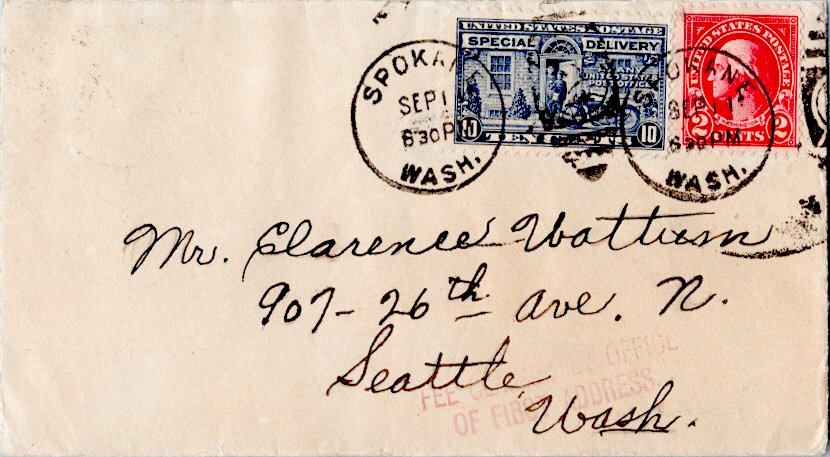 UNITED STATES POSTAGE
SPECIAL DELIVERY
UNITED STATES
POST OFFICE
10 TEN 10
UNITED STATES POSTAGE
2 CENTS 2
SPOKANE
SEP 1
630P
WASH.
SPOKANE
SEP 1
630PM
WASH.
Mr. Clarence Wattum
907-26th Ave. N.
Seattle,
Wash.
FEE OFFICE
OF FIRST ADDRESS.